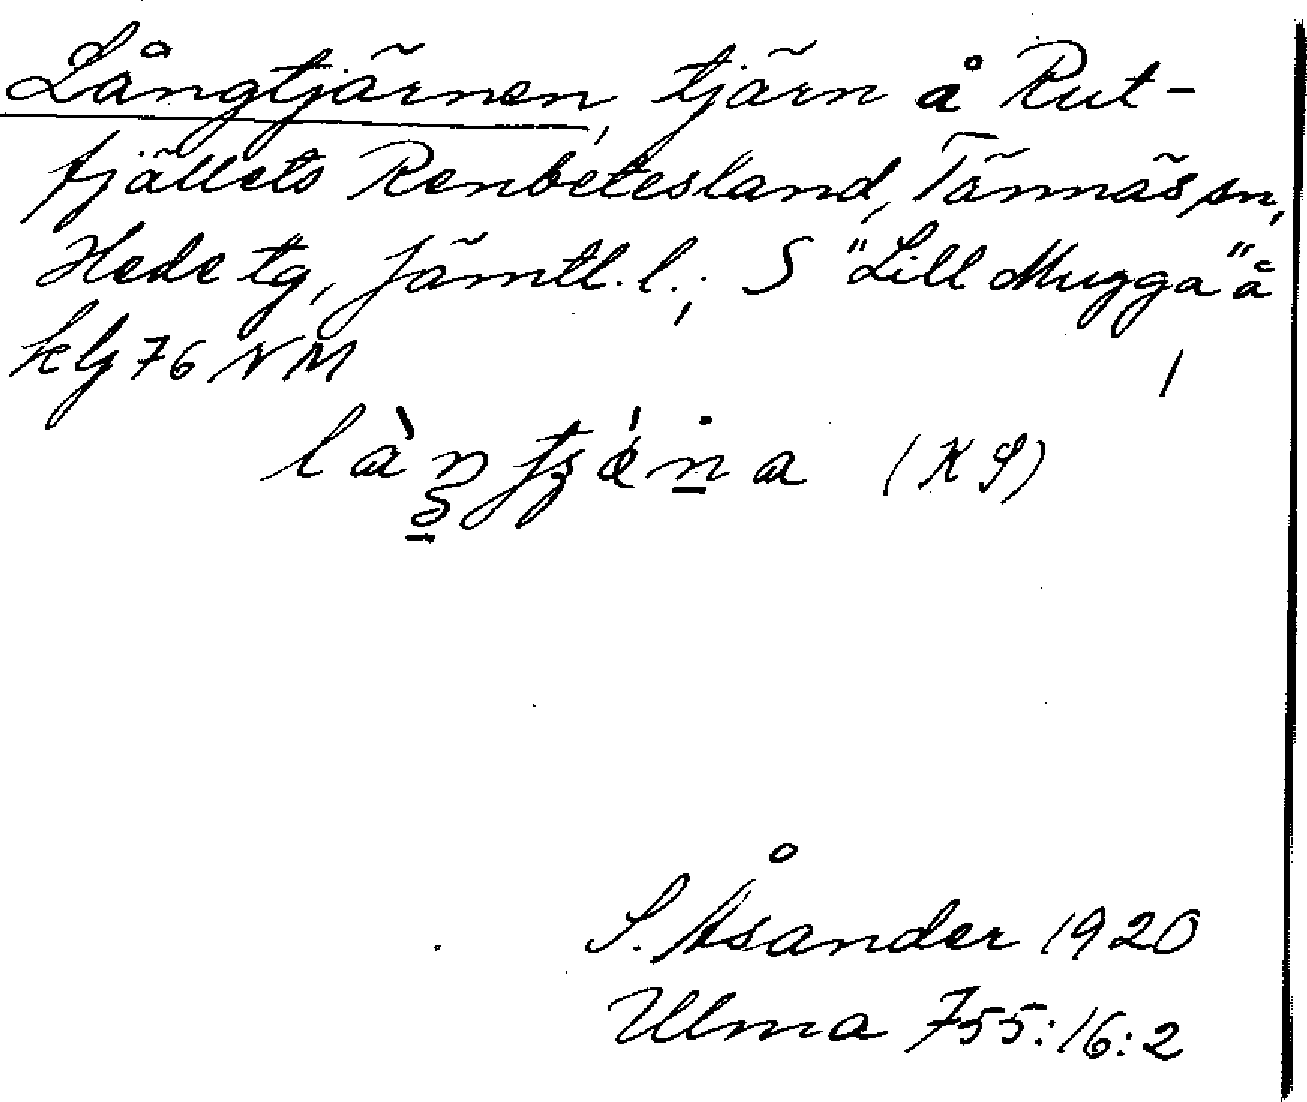 Långtjärnen, tjärn å Rut-
fjällets Renbetesland, Tännäs sn,
Hede tg, Jämtl. l.; S "Lill Mugga" å
kbl 76 NM
(KS)
S. Åsander 1920
Ulma 755:16:2